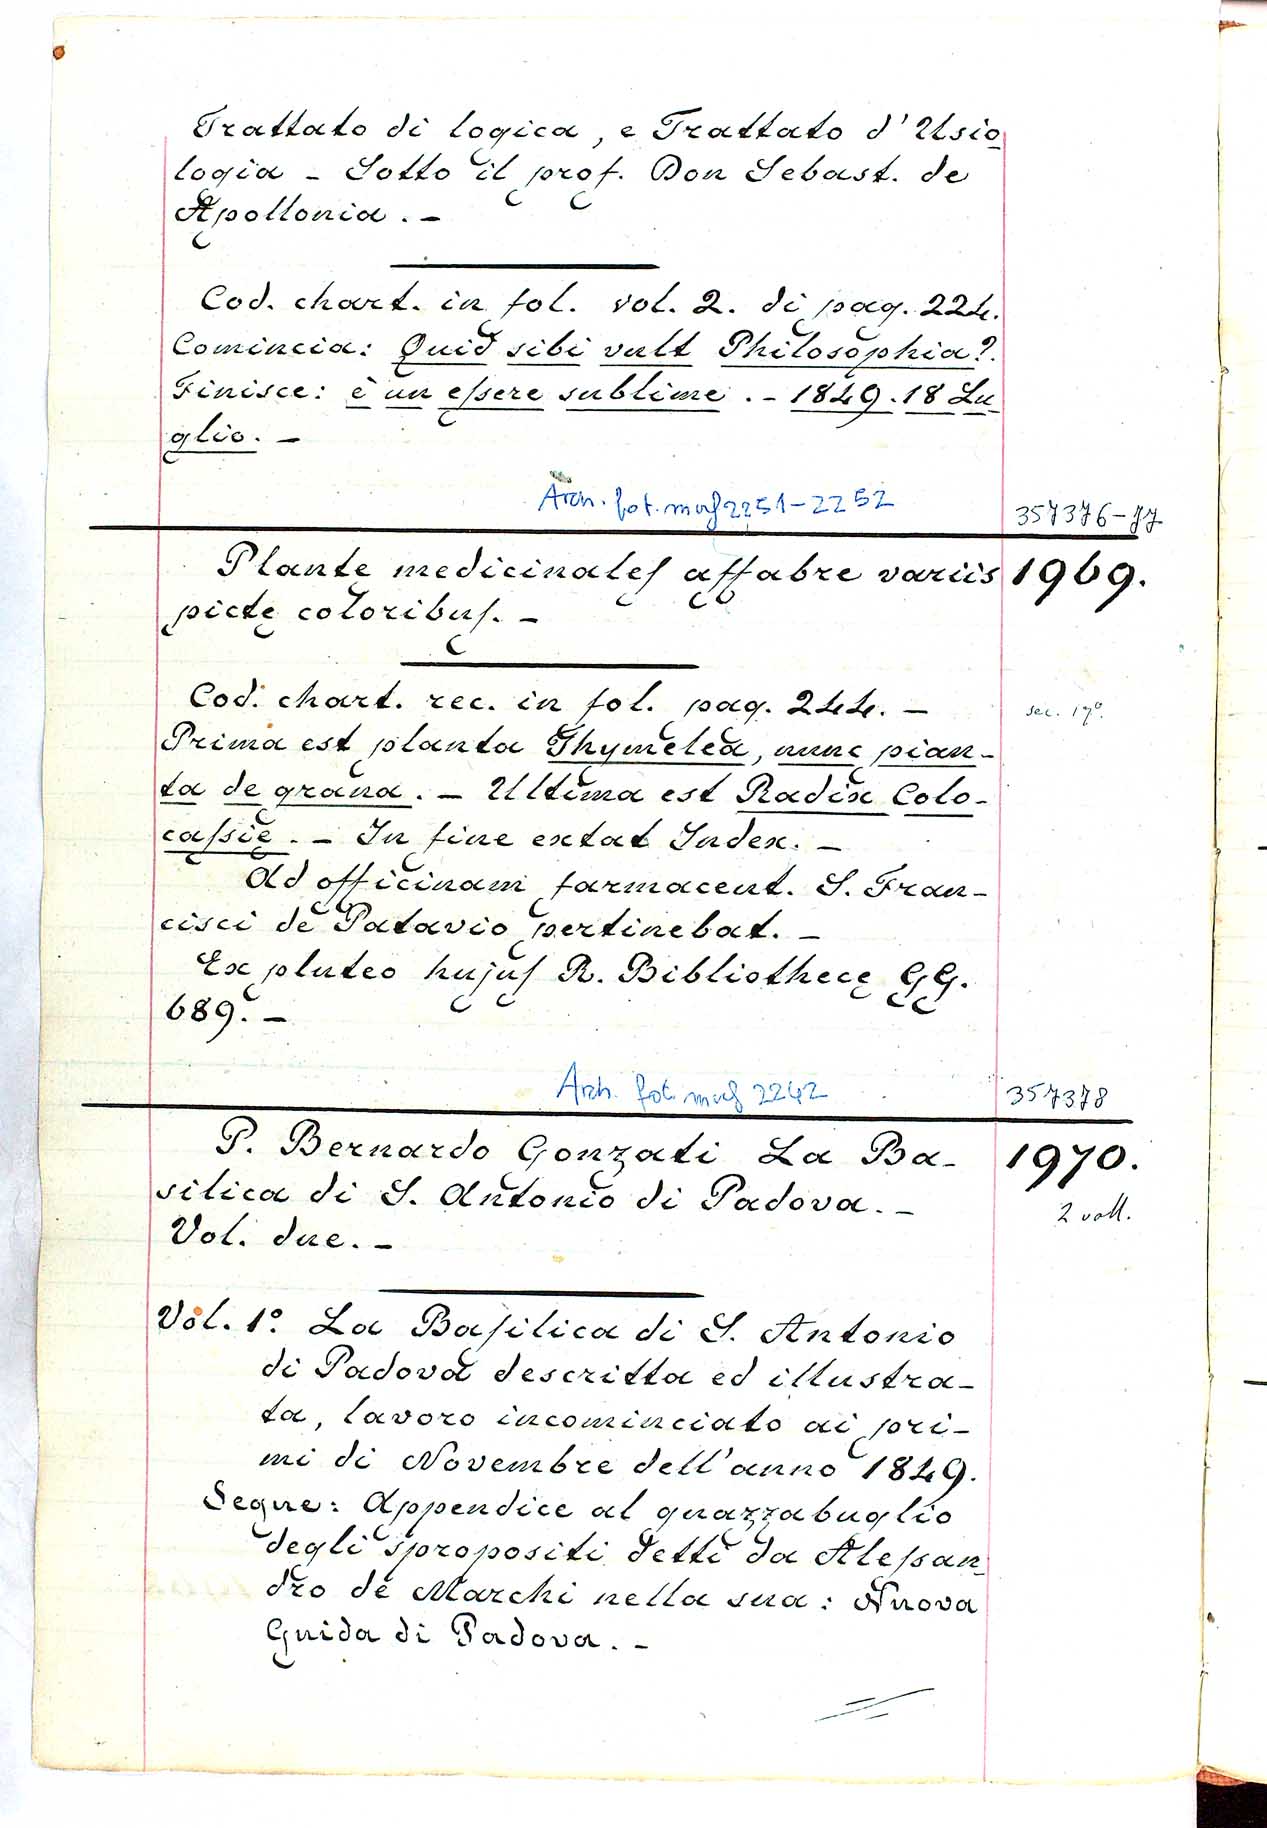 Trattato di logica, e Trattato d'Usio
logia - Sotto il prof. Don Sebast. de
Apollonia. -
Cod. chart. in fol. vol. 2. di pag. 224.
Comincia: Quid sibi vult Philosophia?.
Finisce: è un eſsere sublime. - 1849. 18 Lu_
glio. -
Arch. fot. msſ 2251-2252
357376-77
Plante medicinaleſ affabre variis
1969.
pictę coloribuſ. -
Cod. chart. rec. in fol. pag. 244. -
sec. 17°.
Prima est planta Thymelea, nunc pian-
ta de grana. - Ultima est Radix Colo-
caſsię. - In fine extat Index. -
Ad officinam farmaceut. S. Fran-
cisci de Patavio pertinebat. -
Ex pluteo hujuſ R. Bibliothecę GG.
689. -
Arch. fot. msſ 2242
357378
P. Bernardo Gonzati La Ba-
1970.
silica di S. Antonio di Padova. -
2 voll.
Vol. due. -
Vol. 1°. La Baſilica di S. Antonio
di Padova descritta ed illustra-
ta, lavoro incominciato ai pri-
mi di Novembre dell'anno 1849.
Segue: Appendice al guazzabuglio
degli spropositi detti da Aleſsan_
dro de Marchi nella sua: Nuova
Guida di Padova. -